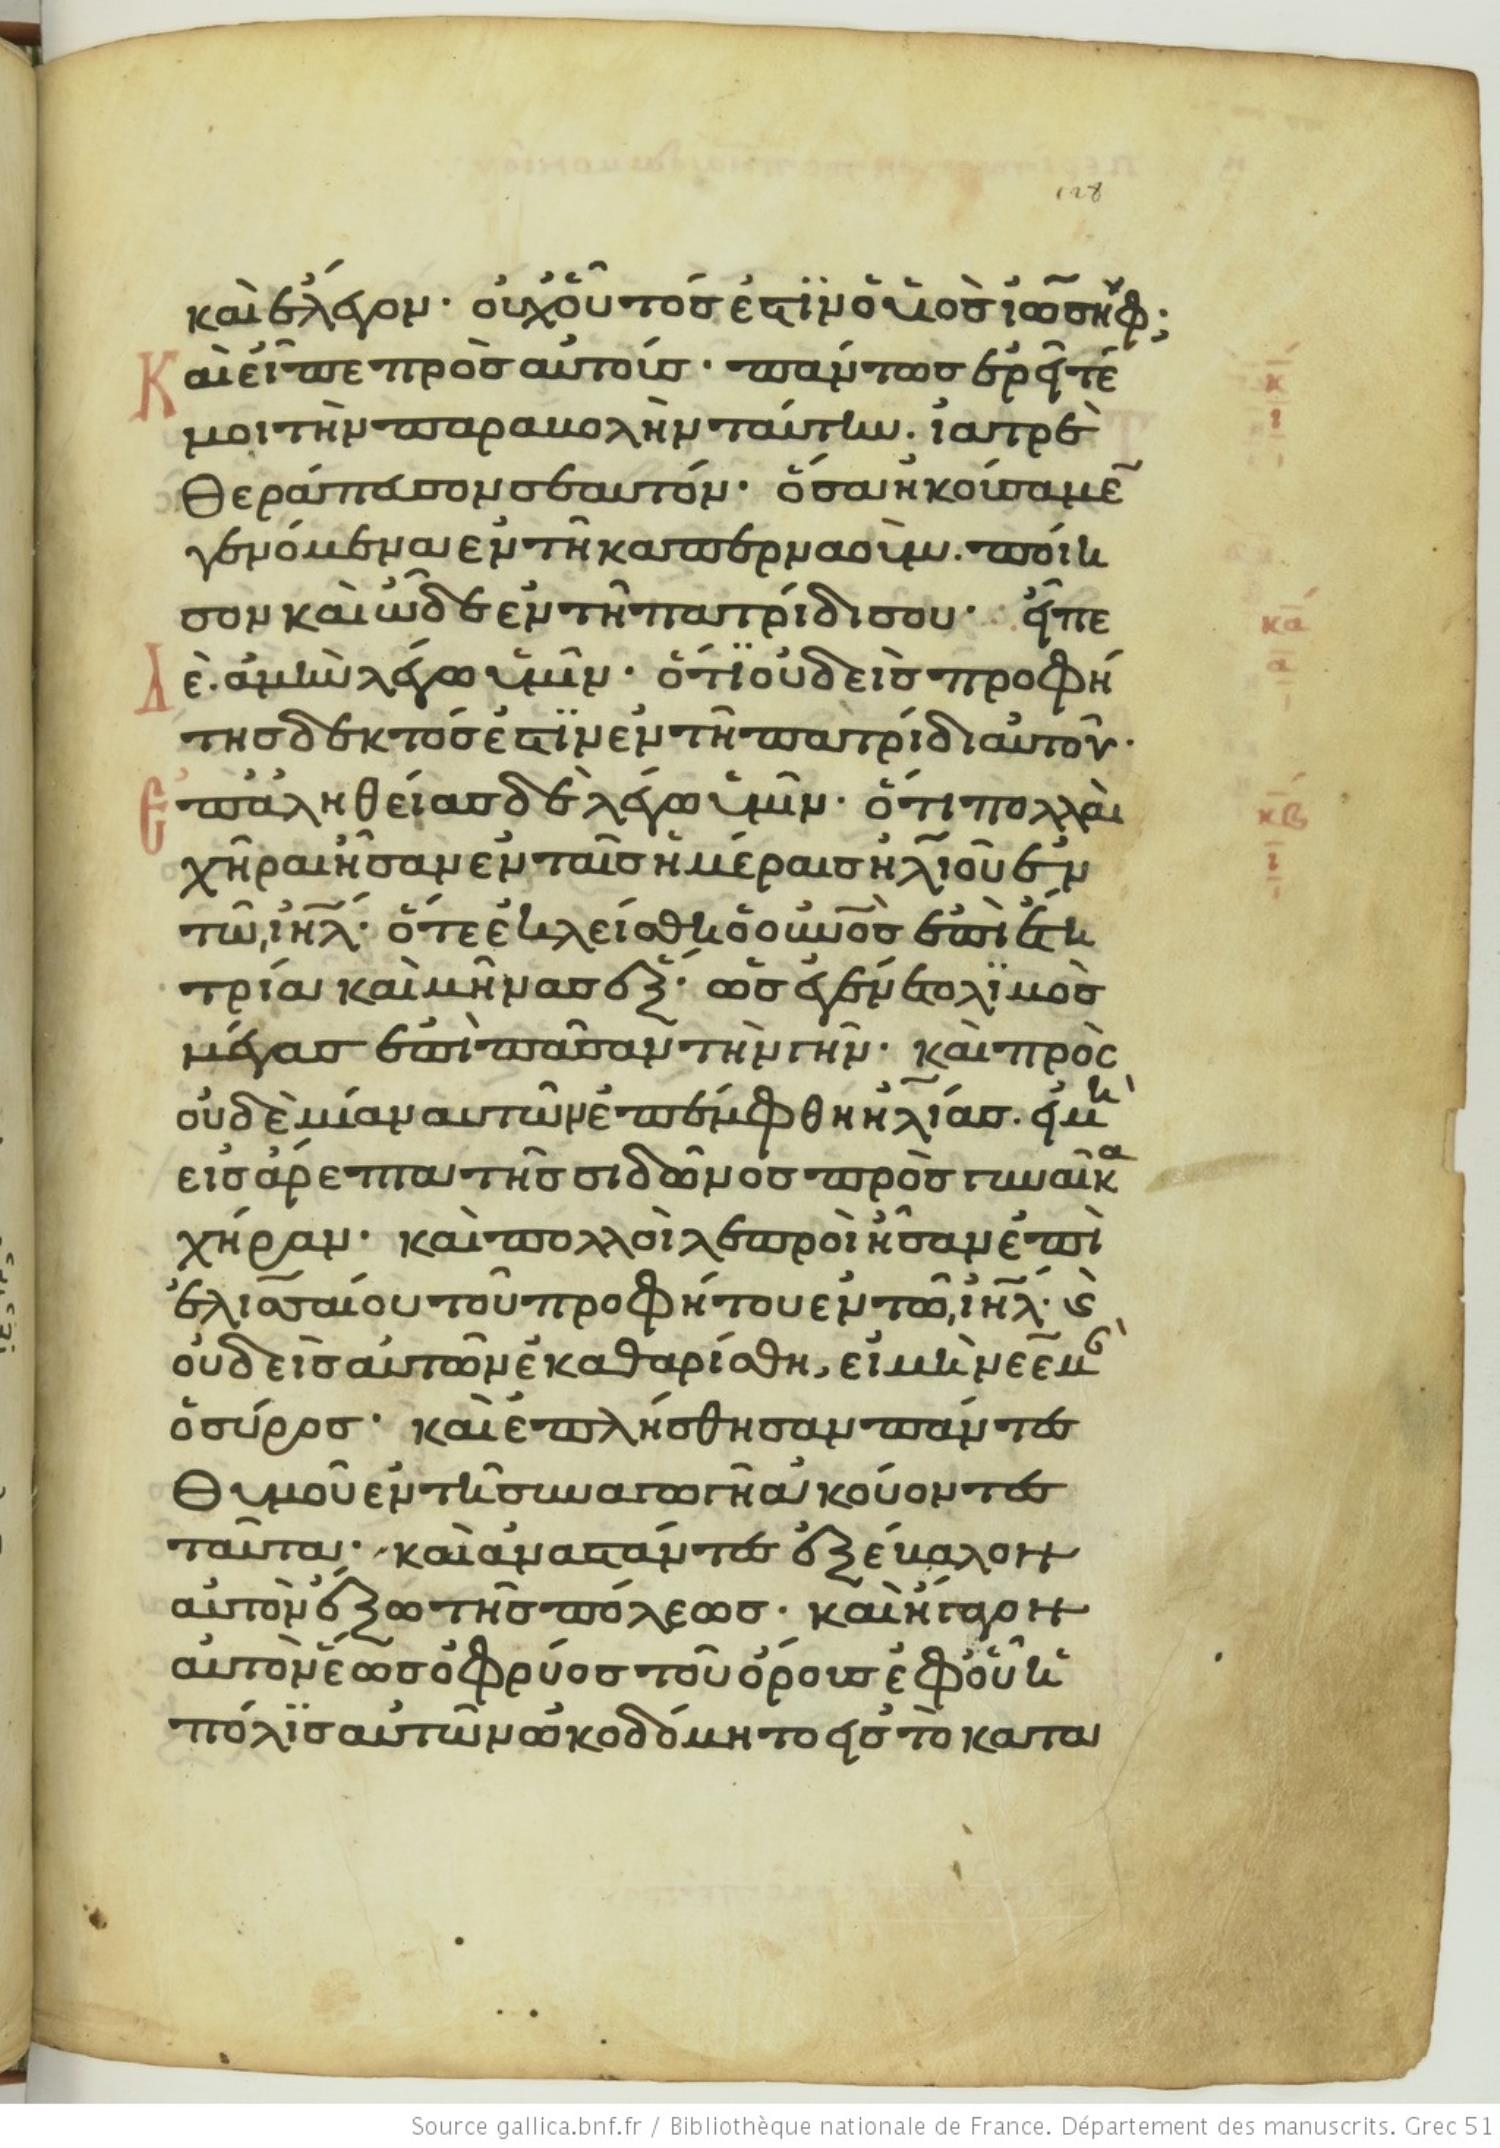 128
καὶ ἔλεγον· οὐχ οὗτός ἐστϊν ὁ υἱὸς ἰωσήφ;
Καὶ εἶπε πρὸς αὐτούς· πάντως ἐρεῖτέ
κ
ι
μοι τὴν παραβολὴν ταύτην. ἰατρὲ
θεράπευσον σεαυτόν· ὅσα ἠκούσαμε̄
γενόμενα ἐν τῆ καπερναούμ. ποίη
σον καὶ ὧδε ἐν τῆ πατρίδι σου· εἶπε
κα
α
Δὲ. ἀμὴν λέγω ὑμῖν· ὅτϊ οὐδεὶς προφή
της δεκτός ἐστϊν ἐν τῆ πατρίδι αὐτοῦ·
Ἐπ' ἀληθείας δὲ λέγω ὑμῖν· ὅτι πολλαὶ
κβ
ι
χῆραι ἦσαν ἐν ταῖς ἡμέραις ἠλιοῦ ἐν
τῶ ἰηλ̄· ὅτε ἐκλείσθη ὁ οὐνο̄ς ἐπὶ ἔτη
τρία καὶ μῆνας ἕξ· ὡς ἐγένετο λϊμὸς
μέγας ἐπὶ πᾶσαν τὴν γῆν· καὶ πρὸς
οὐδὲμίαν αὐτῶν ἐπέμφθη ἠλίας. εἰ μὴ
εἰς σάρεπτα τῆς σιδῶνος πρὸς γυναῖκα
χήραν· καὶ πολλοὶ λεπροὶ ἦσαν ἐπὶ
ἐλισσαίου τοῦ προφήτου ἐν τῶ ἰηλ̄· ϗ
οὐδεὶς αὐτῶν ἐκαθαρίσθη, εἰ μὴ νεεμὰν
ὁ σύρος· καὶ ἐπλήσθησαν πάντες
θυμοῦ ἐν τῆ συναγωγῆ ἀκούοντες
ταῦτα· καὶ ἀναστάντες ἐξέβαλον
αὐτὸν ἔξω τῆς πόλεως· καὶ ἤγαγον
αὐτὸν ἕως ὀφρύος τοῦ ὄρους ἐφ' οὗ ἡ
πόλϊς αὐτῶν ὠκοδόμητο εἰς τὸ κατα
Source gallica.bnf.fr / Bibliothèque nationale de France. Département des manuscrits. Grec 51